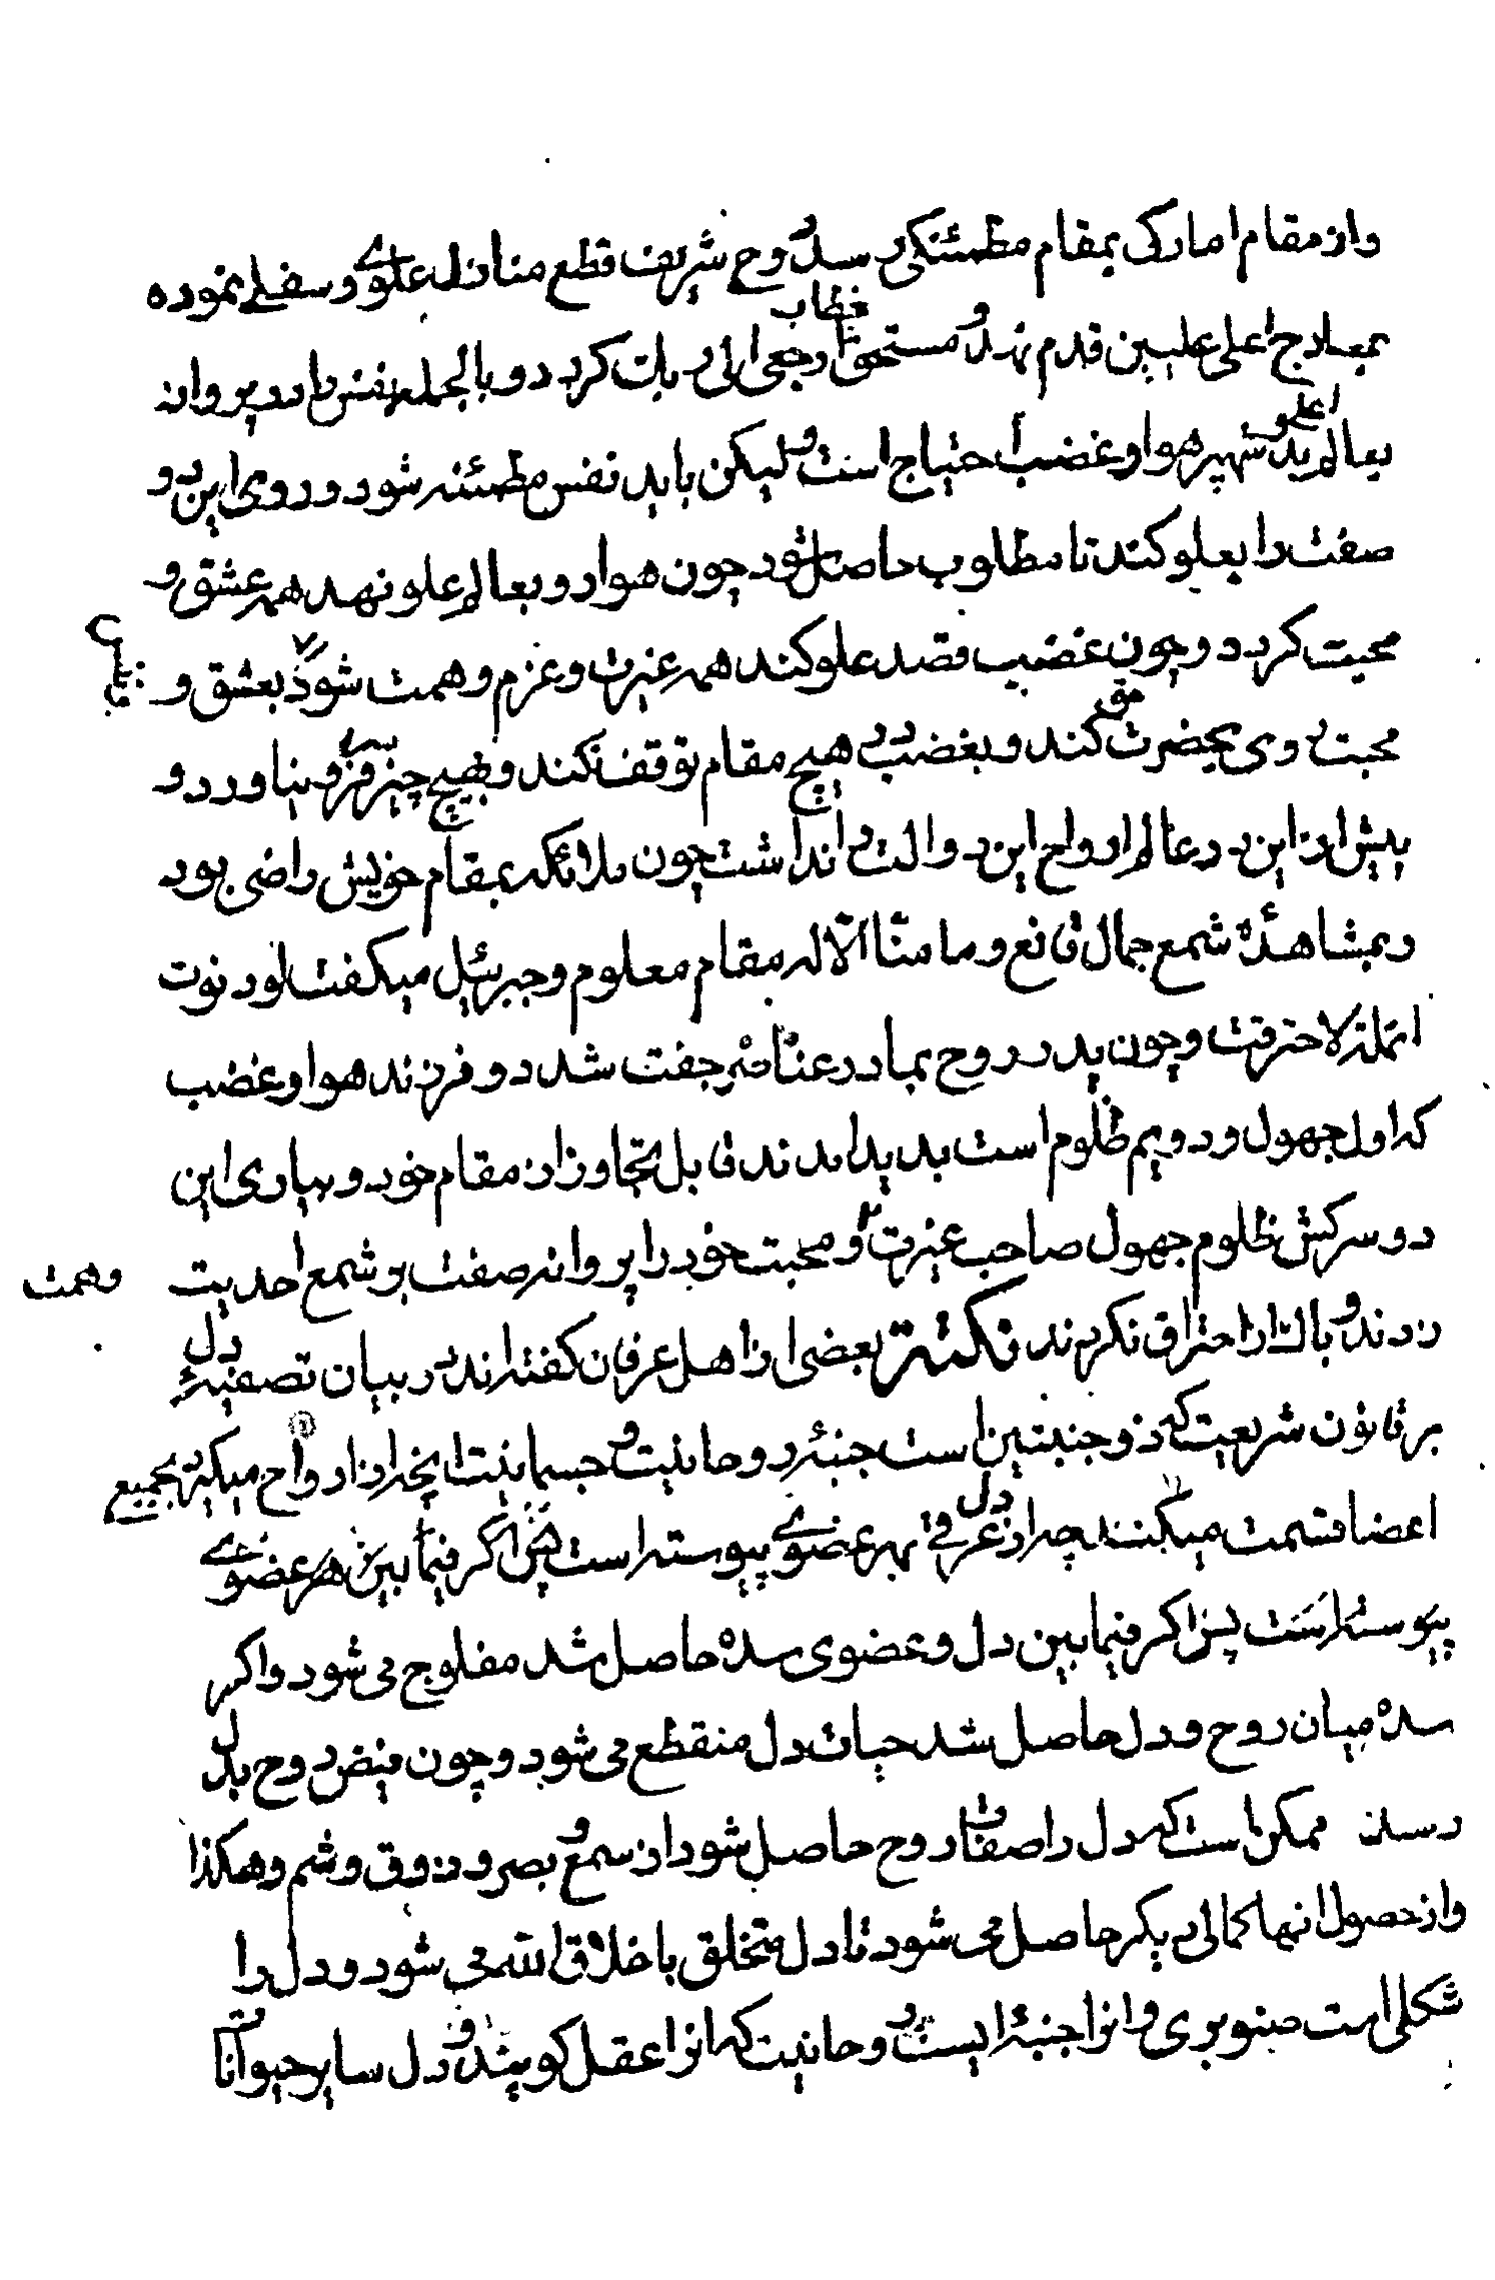 واز مقام امارکی بمقام مطمئنکی رسد روح شریف قطع منازل علوی و سفلی نموده
بمعارج اعلی علیین قدم نهد و مستحق خطاب ارجعی الی ربک کردد و بالجمله نفس را در پرواز
بعالم اعلی بدو شهپر هوا و غضب احتیاج است و لیکن باید نفس مطمئنه شود و روی این دو
صفت را بعلو کند تا مطلوب حاصل شود چون هوا رو بعالم علو نهد همه عشق و
محبت کردد و چون غضب قصد علو کند همه غیرت و عزم و همت شود بعشق و
محبت روی بحضرت حق کند و بغضب در هیچ مقام توقف نکند و بهیچ چیز سر فرو نیاورد و
پیش از این در عالم ارواح این دو الت را نداشت چون ملائکه بمقام خویش راضی بود
و بمشاهدهٔ شمع جمال قانع و ما منّا الّا له مقام معلوم و جبرئیل میکفت لو دنوت
انملة لاحترقت و چون پدر روح بمادر عناصر جفت شد دو فرزند هوا و غضب
که اول جهول و دویم ظلوم است پدید امدند قابل تجاوز از مقام خود و بیاری این
دو سرکش ظلوم جهول صاحب غیرت و محبت خود را پروانه صفت بر شمع احدیت وهمت
زدند و باک از احتراق نکردند نکتة بعضی از اهل عرفان کفته اند در بیان تصفیهٔ دل
بر قانون شریعت که ذو جنبتین است جنبهٔ روحانیت و جسمانیت انچه از ارواح میکیرد بجمیع
اعضا قسمت میکند چه از دل عرقی بهر عضوی پیوسته است پس اکر فیما بین هر عضوی
پیوسته است پس اکر فیما بین دل و عضوی سده حاصل شد مفلوج می شود و اکر
سده میان روح و دل حاصل شد حیات دل منقطع می شود و چون فیض روح بدل
رسد ممکن است که دل را صفات روح حاصل شود از سمع و بصر و ذوق و شم و هکذا
و از حصول انها کمالی دیکر حاصل می شود تا دل متخلق باخلاق الله می شود و دل را
شکلی است صنوبری و انرا جنبهٔ ایست روحانیت که انرا عقل کویند و دل سایر حیوانات